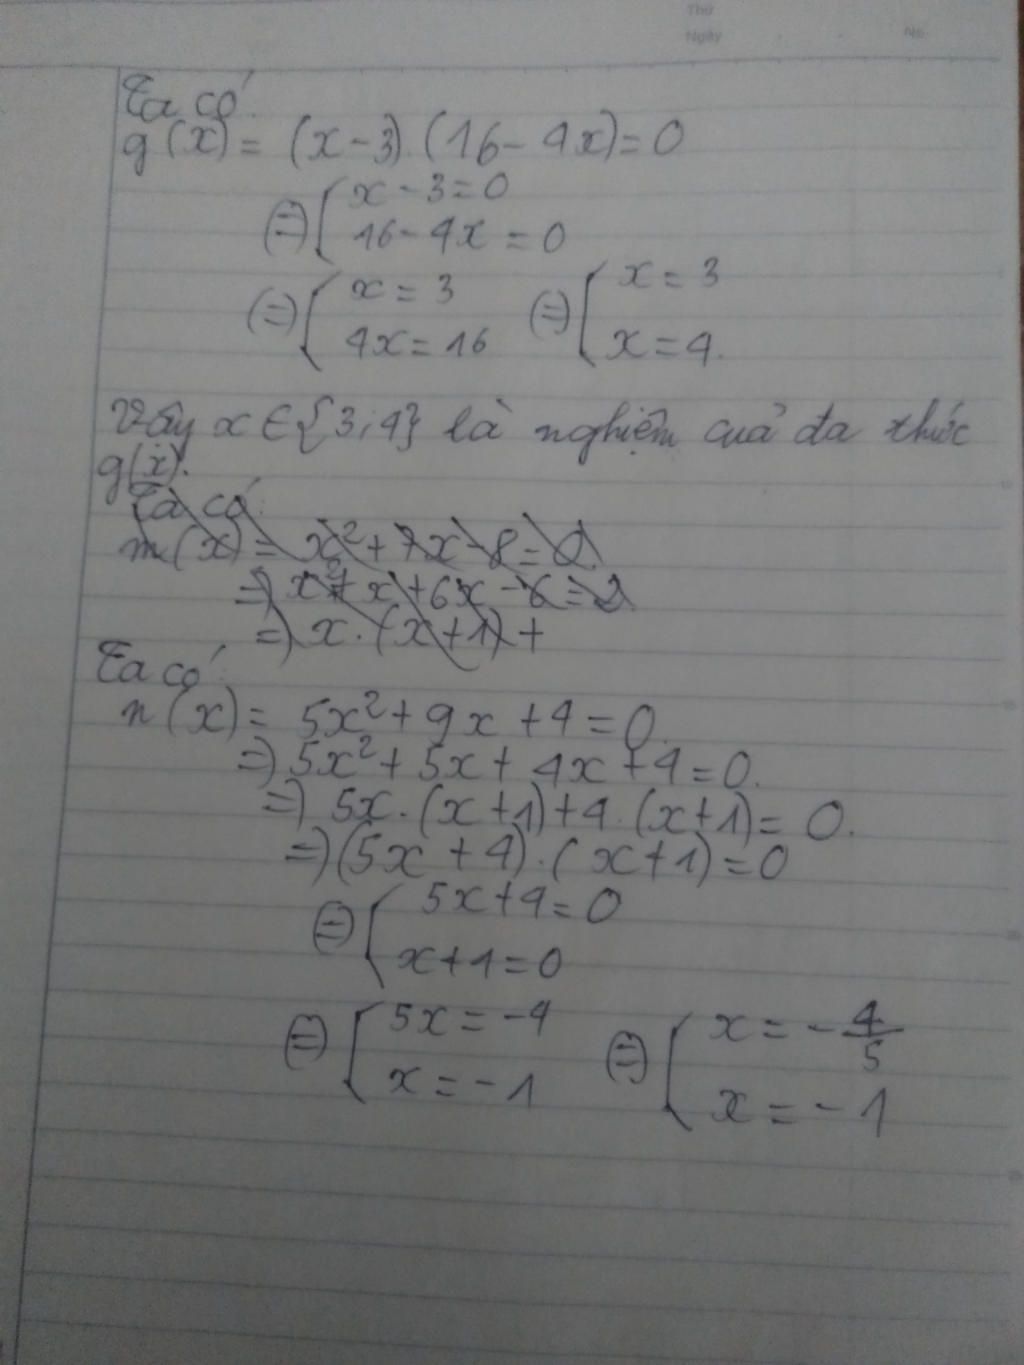 Thứ
Ngày . . No.
Ta có
g(x) = (x-3).(16-4x)=0
(=) [ x-3=0
16-4x=0
(=) [ x=3 (=) [ x=3
4x=16 x=4.
Vậy x∈{3;4} là nghiệm cuả đa thức
g(x).
Ta có:
m(x) = x²+7x-8=0
=) x²+x+6x-6=2
=) x.(x+1)+
Ta có:
n(x) = 5x²+9x+4=0.
=) 5x²+5x+4x+4=0.
=) 5x.(x+1)+4.(x+1)=0.
=) (5x+4).(x+1)=0
(=) [ 5x+4=0
x+1=0
(=) [ 5x=-4 (=) [ x=-4/5
x=-1 x=-1